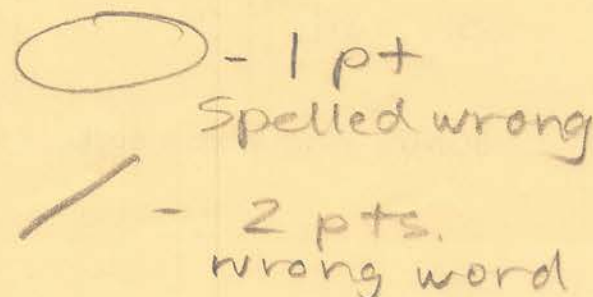 - 1 pt
Spelled wrong
- 2 pts.
wrong word